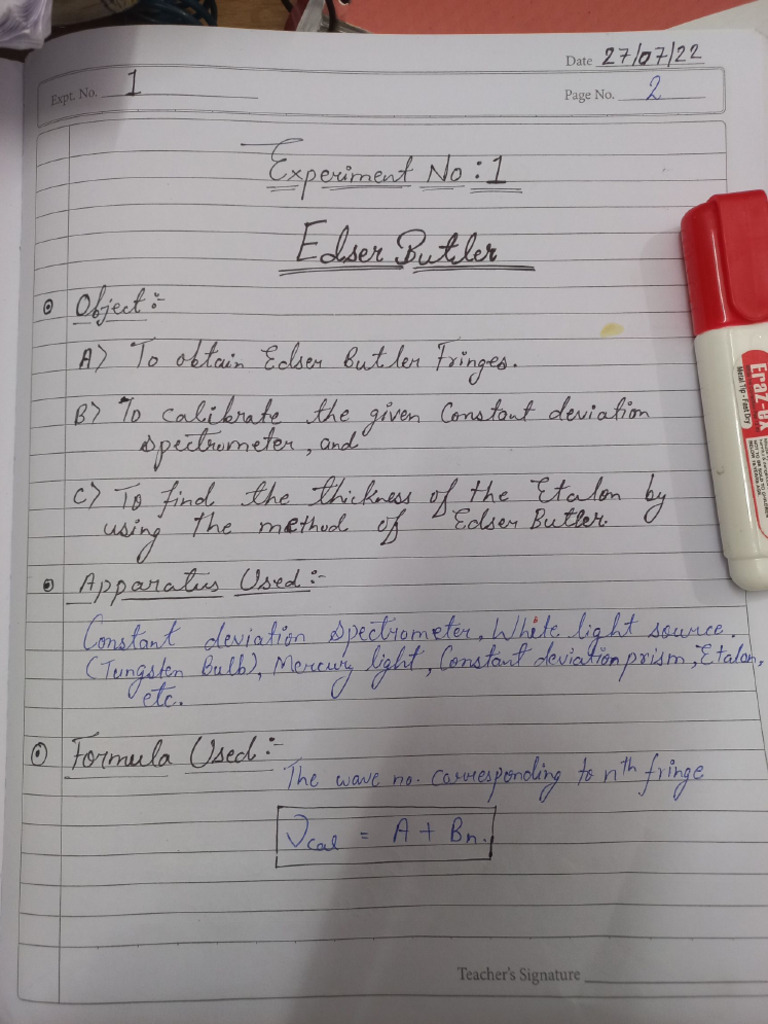 Date 27/07/22
Expt. No. 1
Page No. 2
Experiment No : 1
Edser Butler
Object :-
A) To obtain Edser Butler Fringes.
B) To calibrate the given Constant deviation
spectrometer, and
C) To find the thickness of the Etalon by
using the method of Edser Butler.
Apparatus Used :-
Constant deviation Spectrometer, White light source.
(Tungsten Bulb), Mercury light, Constant deviation prism, Etalon,
etc.
Formula Used :-
The wave no. corresponding to nth fringe
ν cal = A + Bn.
Teacher's Signature
Eraz-ex
Metal Tip - Fast Dry